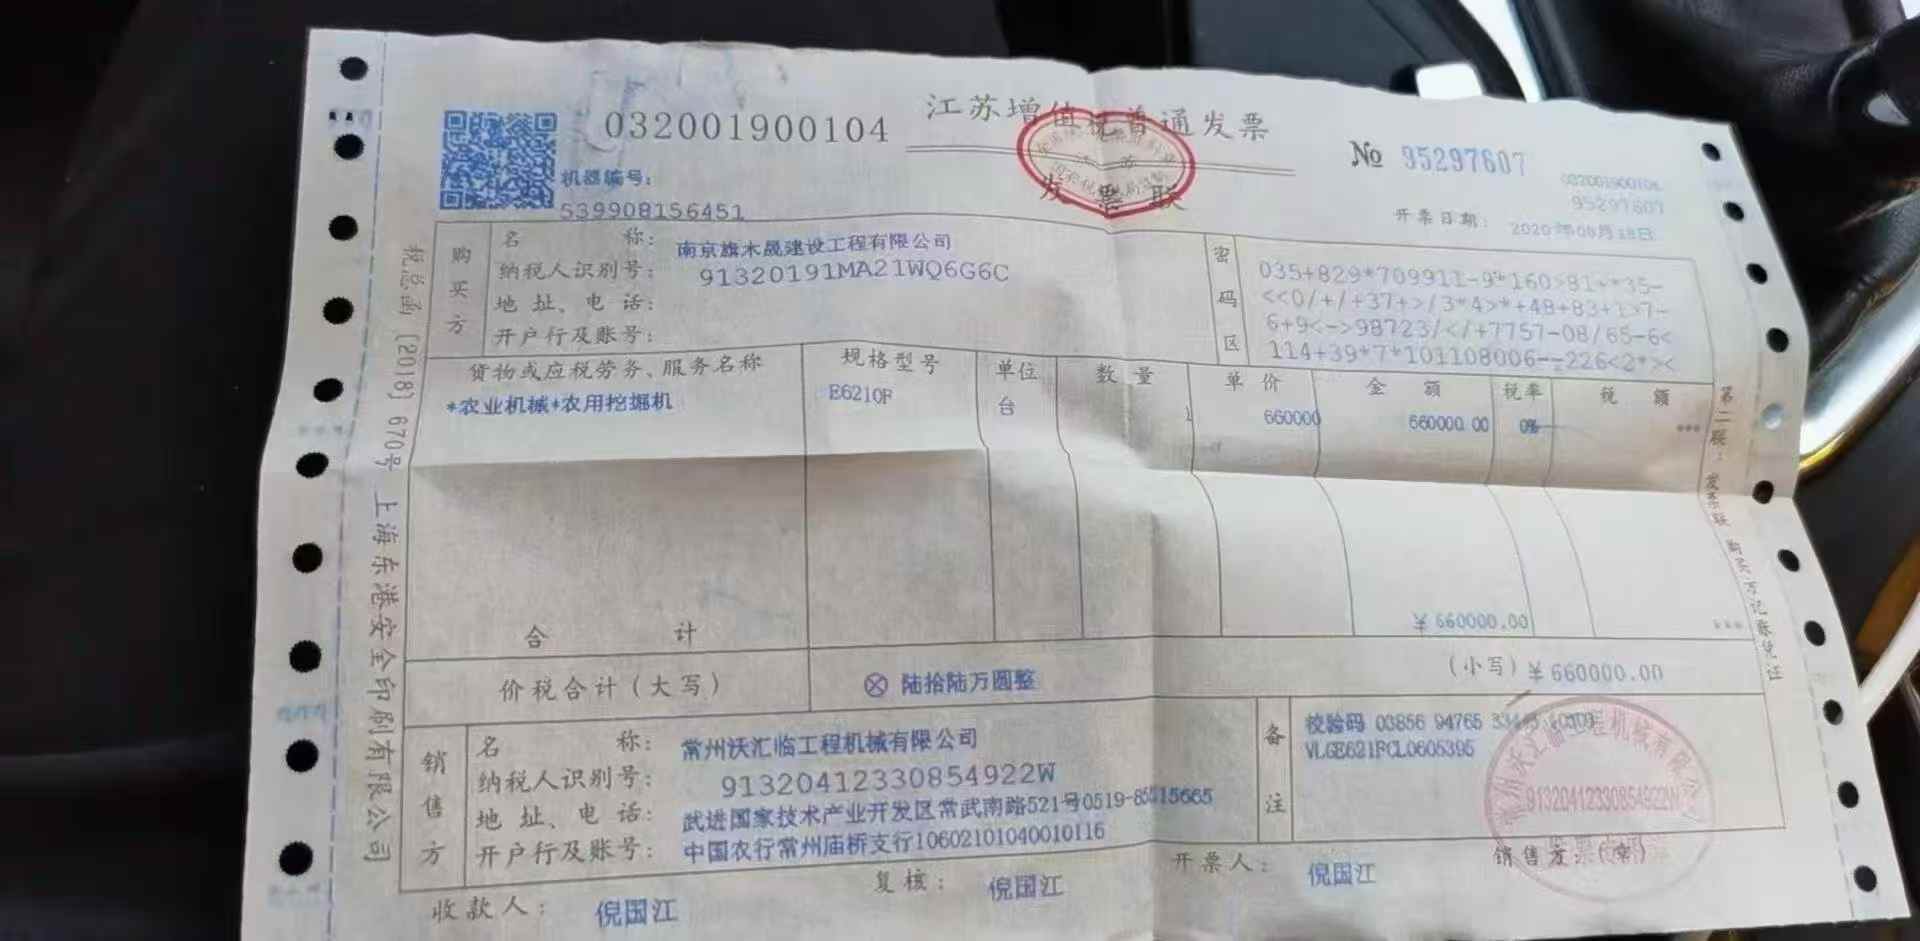 032001900104
江苏增值税普通发票
发票联
№ 95297607
032001900104
95297607
机器编号:
539908156451
开票日期:
税总函〔2018〕670号 上海东港安全印刷有限公司
购买方
名 称: 南京旗木晟建设工程有限公司
纳税人识别号: 91320191MA21WQ6G6C
地 址、电 话:
开户行及账号:
密码区
035+829*709911-9*160>81+*35-
<<0/+/+37+>/3*4>*+48+83+1>7-
6+9<->98723/</+7757-08/65-6<
114+39*7*101108006--226<2*><
货物或应税劳务、服务名称 规格型号 单位 数 量 单 价 金 额 税率 税 额
*农业机械*农用挖掘机 E6210F 台 1 660000 660000.00 0% ***
合 计 ¥660000.00 ***
价税合计(大写) ⊗ 陆拾陆万圆整 (小写)¥660000.00
销售方
名 称: 常州沃汇临工程机械有限公司
纳税人识别号: 91320412330854922W
地 址、电 话: 武进国家技术产业开发区常武南路521号0519-85515665
开户行及账号: 中国农行常州庙桥支行10602101040010116
备注
校验码 03856 94765
VLGE621FCL0605395
91320412330854922W
收款人: 倪国江
复核: 倪国江
开票人: 倪国江
销售方:(章)
第二联:发票联 购买方记账凭证